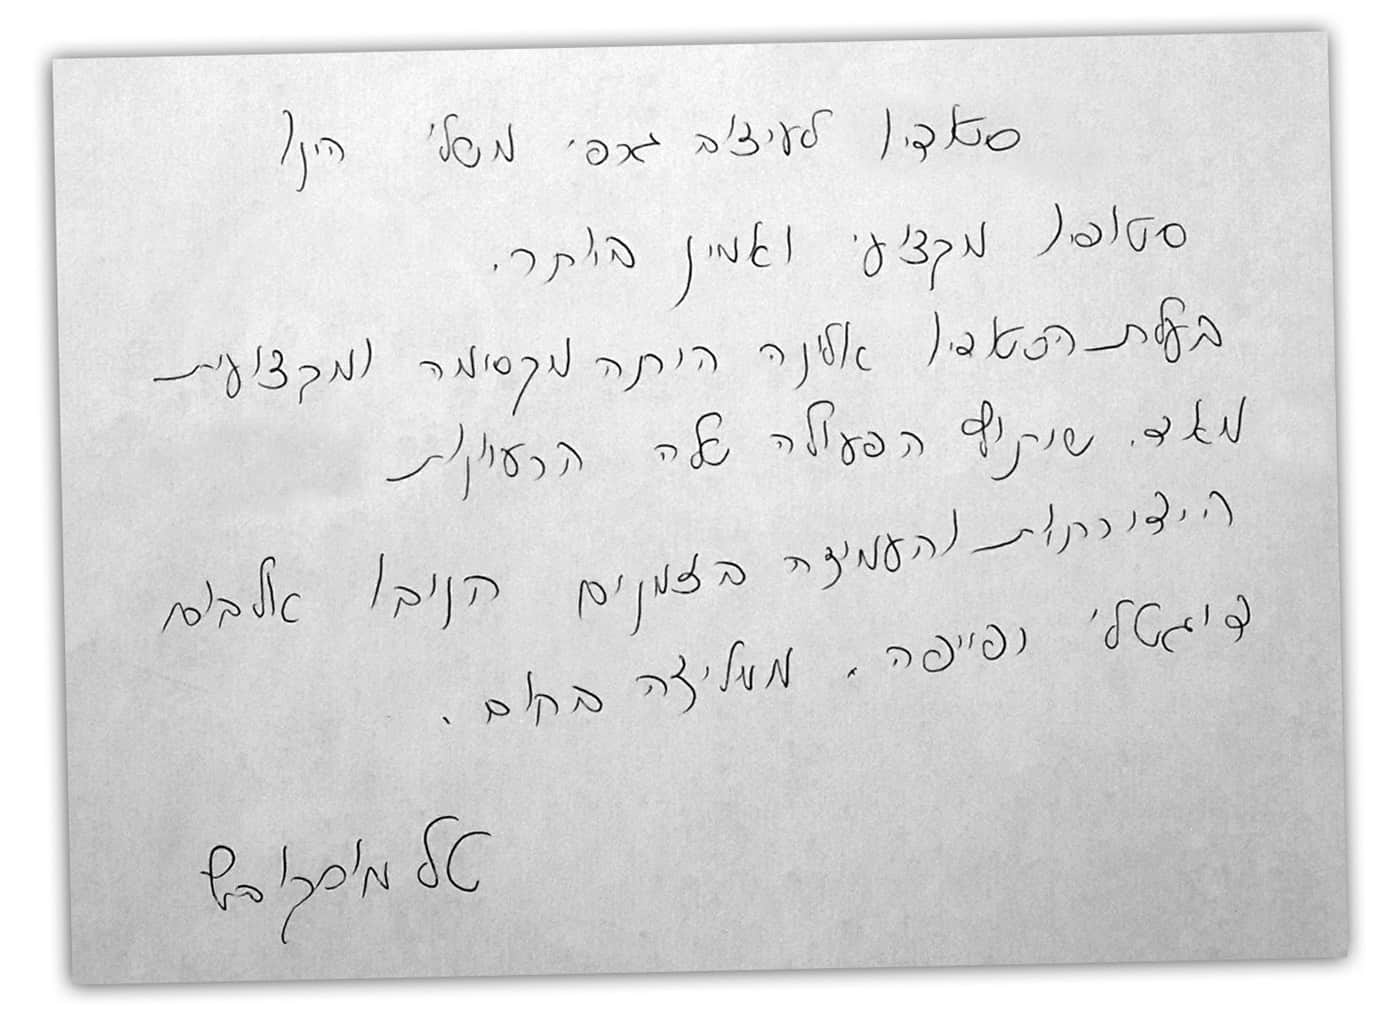 סטודיו לעיצוב גרפי משלי הינו
סטודיו מקצועי ואמין ביותר.
בעלת הסטודיו אלינה היתה מקסימה ומקצועית
מאד. שיתוף הפעולה שלה הרעיונות
היצירתיות והעמידה בזמנים הניבו אלבום
דיגיטלי ופייפה. ממליצה בחום.
טל מוסקוביץ